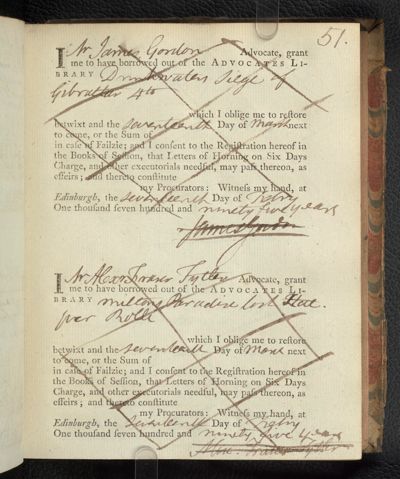 51.
I Mr James Gordon Advocate, grant
me to have borrowed out of the ADVOCATES LI-
BRARY Drinkwaters Siege of
Gibralter 4to
which I oblige me to reſtore
betwixt and the seventeenth Day of March next
to come, or the Sum of
in caſe of Failzie; and I conſent to the Regiſtration hereof in
the Books of Seſſion, that Letters of Horning on Six Days
Charge, and other executorials needful, may paſs thereon, as
effeirs; and thereto conſtitute
my Procurators: Witneſs my hand, at
Edinburgh, the seventeenth Day of
One thouſand seven hundred and ninety five years
James Gordon
I Mr Alexr Fraser Tytler Advocate, grant
me to have borrowed out of the ADVOCATES LI-
BRARY miltons Paradise lost
which I oblige me to reſtore
betwixt and the seventeenth Day of March next
to come, or the Sum of
in caſe of Failzie; and I conſent to the Regiſtration hereof in
the Books of Seſſion, that Letters of Horning on Six Days
Charge, and other executorials needful, may paſs thereon, as
effeirs; and thereto conſtitute
my Procurators: Witneſs my hand, at
Edinburgh, the seventeenth Day of
One thouſand seven hundred and ninety five years
Alex. Fraser Tytler